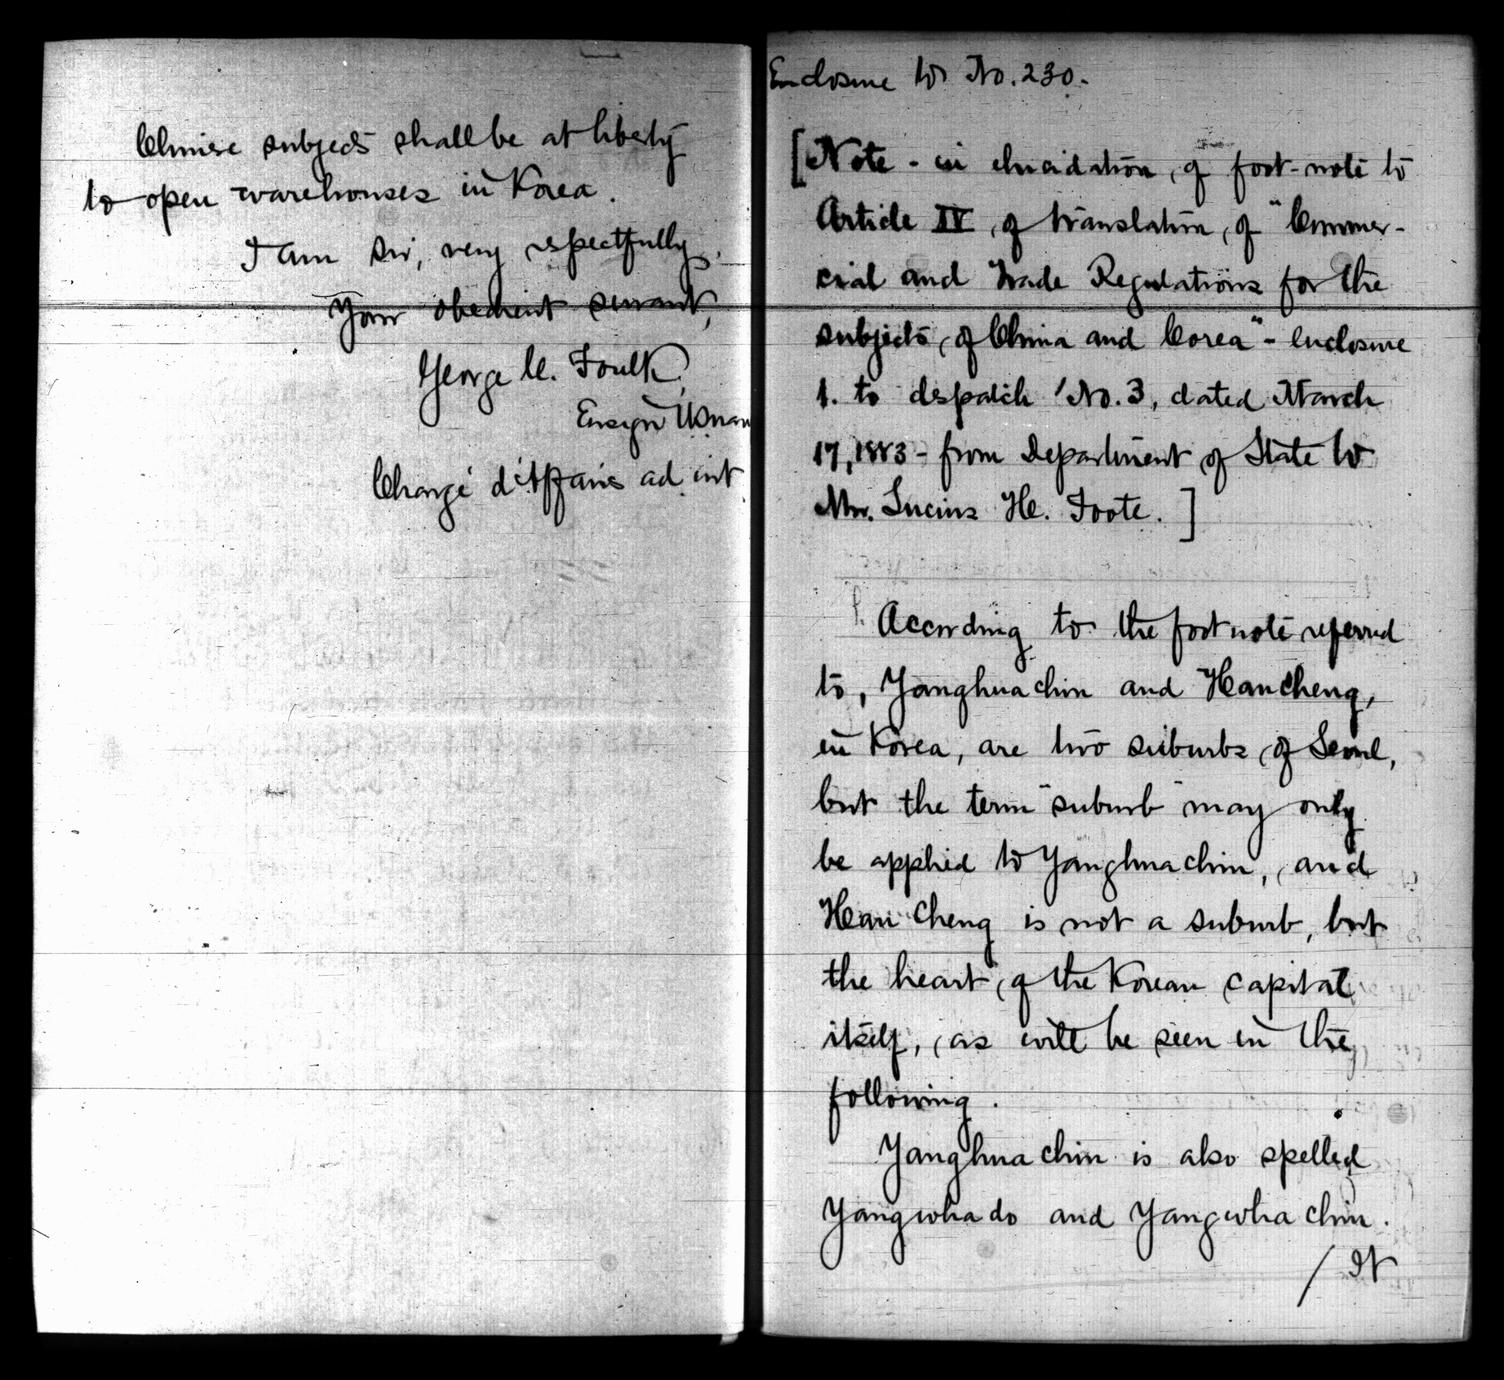 Chinese subjects shall be at liberty
to open warehouses in Korea.
I am sir, very respectfully,
Your obedient servant,
George C. Foulk,
Ensign U.S.
Chargé d'Affaires ad int
Enclosure to No. 230.
[Note - in elucidation, of foot-note to
Article IV, of translation, of "Commer-
cial and Trade Regulations for the
subjects, of China and Corea" - enclosure
1. to dispatch No. 3, dated March
17, 1883 - from Department of State to
Mr. Lucius H. Foote.]
According to the foot note referred
to, Yanghua chin and Han cheng,
in Korea, are two suburbs, of Seoul,
but the term "suburb" may only
be applied to Yanghua chin, and
Han Cheng is not a suburb, but
the heart, of the Korean capital
itself, as will be seen in the
following.
Yanghua chin is also spelled
Yangwha do and Yangwha chin.
/ It